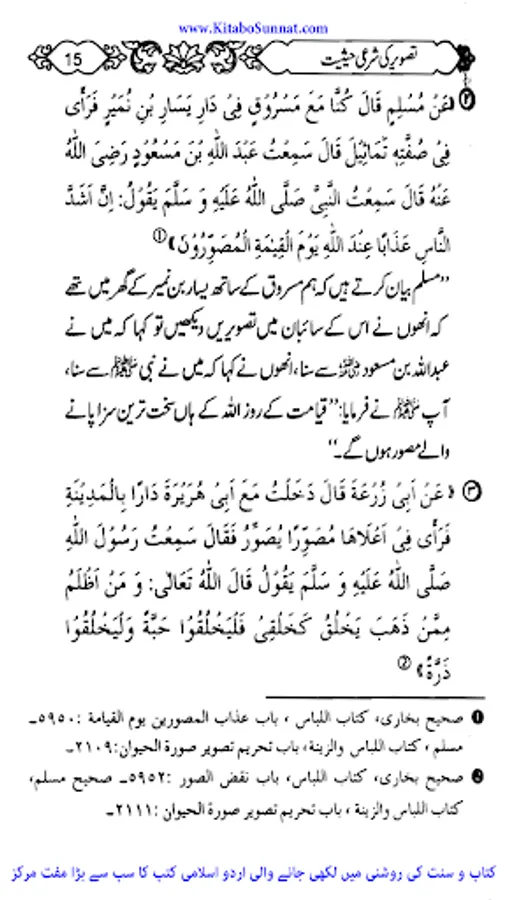 www.KitaboSunnat.com
تصویر کی شرعی حیثیت
15
② ﴿عَنْ مُسْلِمٍ قَالَ كُنَّا مَعَ مَسْرُوْقٍ فِىْ دَارِ يَسَارِ بْنِ نُمَيْرٍ فَرَأَى
فِىْ صُفَّتِهِ تَمَاثِيْلَ قَالَ سَمِعْتُ عَبْدَ اللهِ بْنَ مَسْعُوْدٍ رَضِىَ اللهُ
عَنْهُ قَالَ سَمِعْتُ النَّبِىَّ صَلَّى اللهُ عَلَيْهِ وَ سَلَّمَ يَقُوْلُ: اِنَّ اَشَدَّ
النَّاسِ عَذَابًا عِنْدَ اللهِ يَوْمَ الْقِيٰمَةِ الْمُصَوِّرُوْنَ﴾ ①
”مسلم بیان کرتے ہیں کہ ہم مسروق کے ساتھ یسار بن نمیر کے گھر میں تھے
کہ انھوں نے اس کے سائبان میں تصویریں دیکھیں تو کہا کہ میں نے
عبداللہ بن مسعود رضی اللہ عنہ سے سنا، انھوں نے کہا کہ میں نے نبی ﷺ سے سنا،
آپ ﷺ نے فرمایا: ”قیامت کے روز اللہ کے ہاں سخت ترین سزا پانے
والے مصور ہوں گے۔“
③ ﴿عَنْ اَبِىْ زُرْعَةَ قَالَ دَخَلْتُ مَعَ اَبِىْ هُرَيْرَةَ دَارًا بِالْمَدِيْنَةِ
فَرَأَى فِىْ اَعْلَاهَا مُصَوِّرًا يُصَوِّرُ فَقَالَ سَمِعْتُ رَسُوْلَ اللهِ
صَلَّى اللهُ عَلَيْهِ وَ سَلَّمَ يَقُوْلُ قَالَ اللهُ تَعَالٰى: وَ مَنْ اَظْلَمُ
مِمَّنْ ذَهَبَ يَخْلُقُ كَخَلْقِىْ فَلْيَخْلُقُوْا حَبَّةً وَلْيَخْلُقُوْا
ذَرَّةً﴾ ②
❶ صحیح بخاری، کتاب اللباس ، باب عذاب المصورین یوم القیامة : ٥٩٥٠۔
مسلم ، کتاب اللباس والزینة، باب تحریم تصویر صورة الحیوان: ٢١٠٩۔
❷ صحیح بخاری، کتاب اللباس، باب نقض الصور : ٥٩٥٢۔ صحیح مسلم،
کتاب اللباس والزینة ، باب تحریم تصویر صورة الحیوان : ٢١١١۔
کتاب و سنت کی روشنی میں لکھی جانے والی اردو اسلامی کتب کا سب سے بڑا مفت مرکز